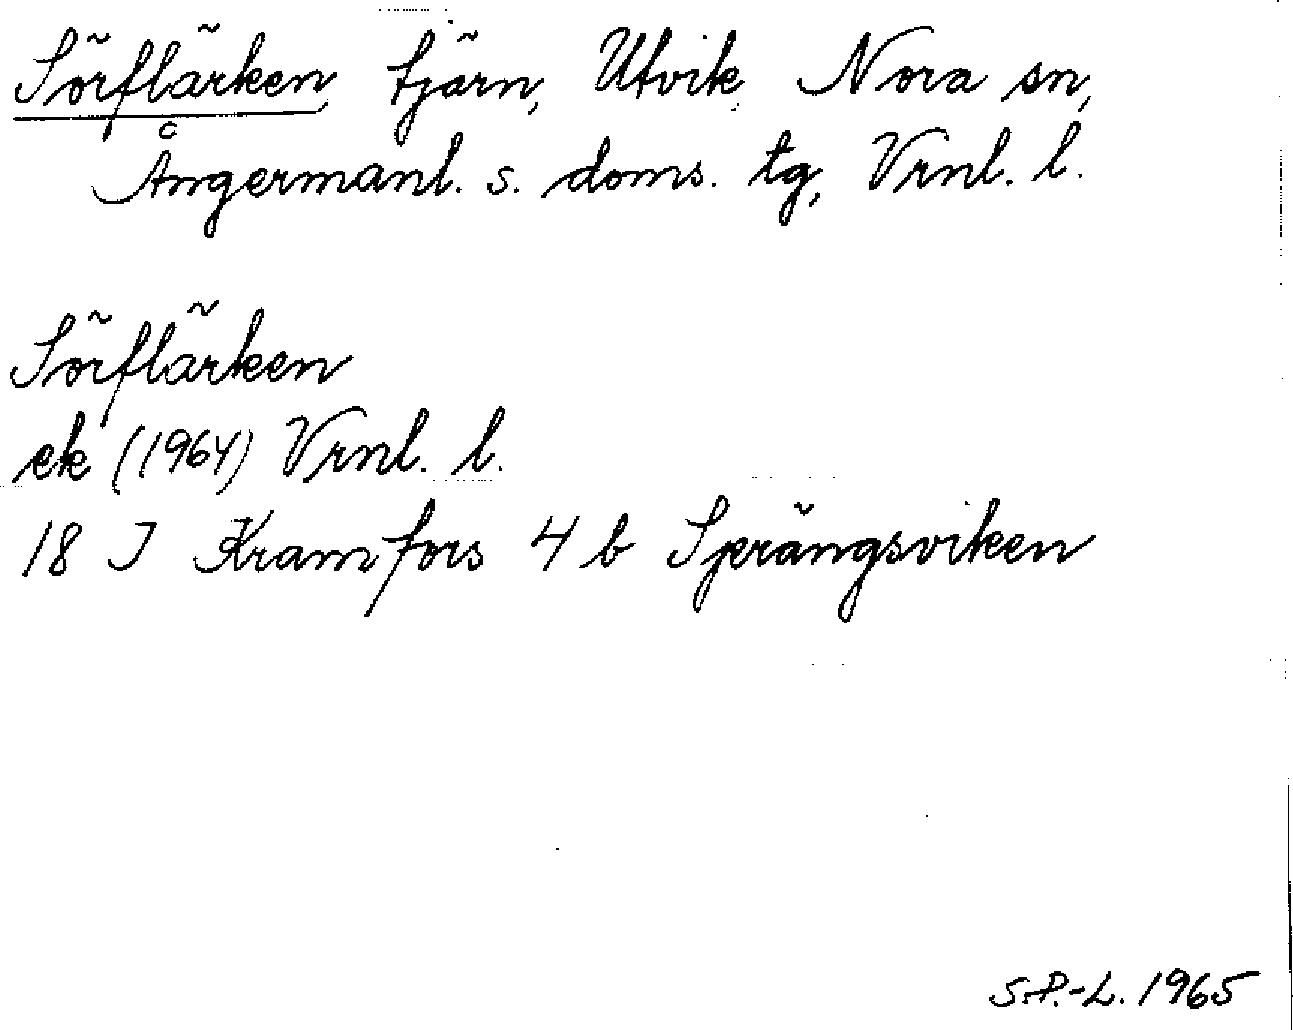 Sörflärken, tjärn, Utvik, Nora sn,
Ångermanl. s. doms. tg, Vrnl. l.
Sörflärken
ek (1964) Vrnl. l.
18 I Kramfors 4 b Sprängsviken
S.P.-L. 1965